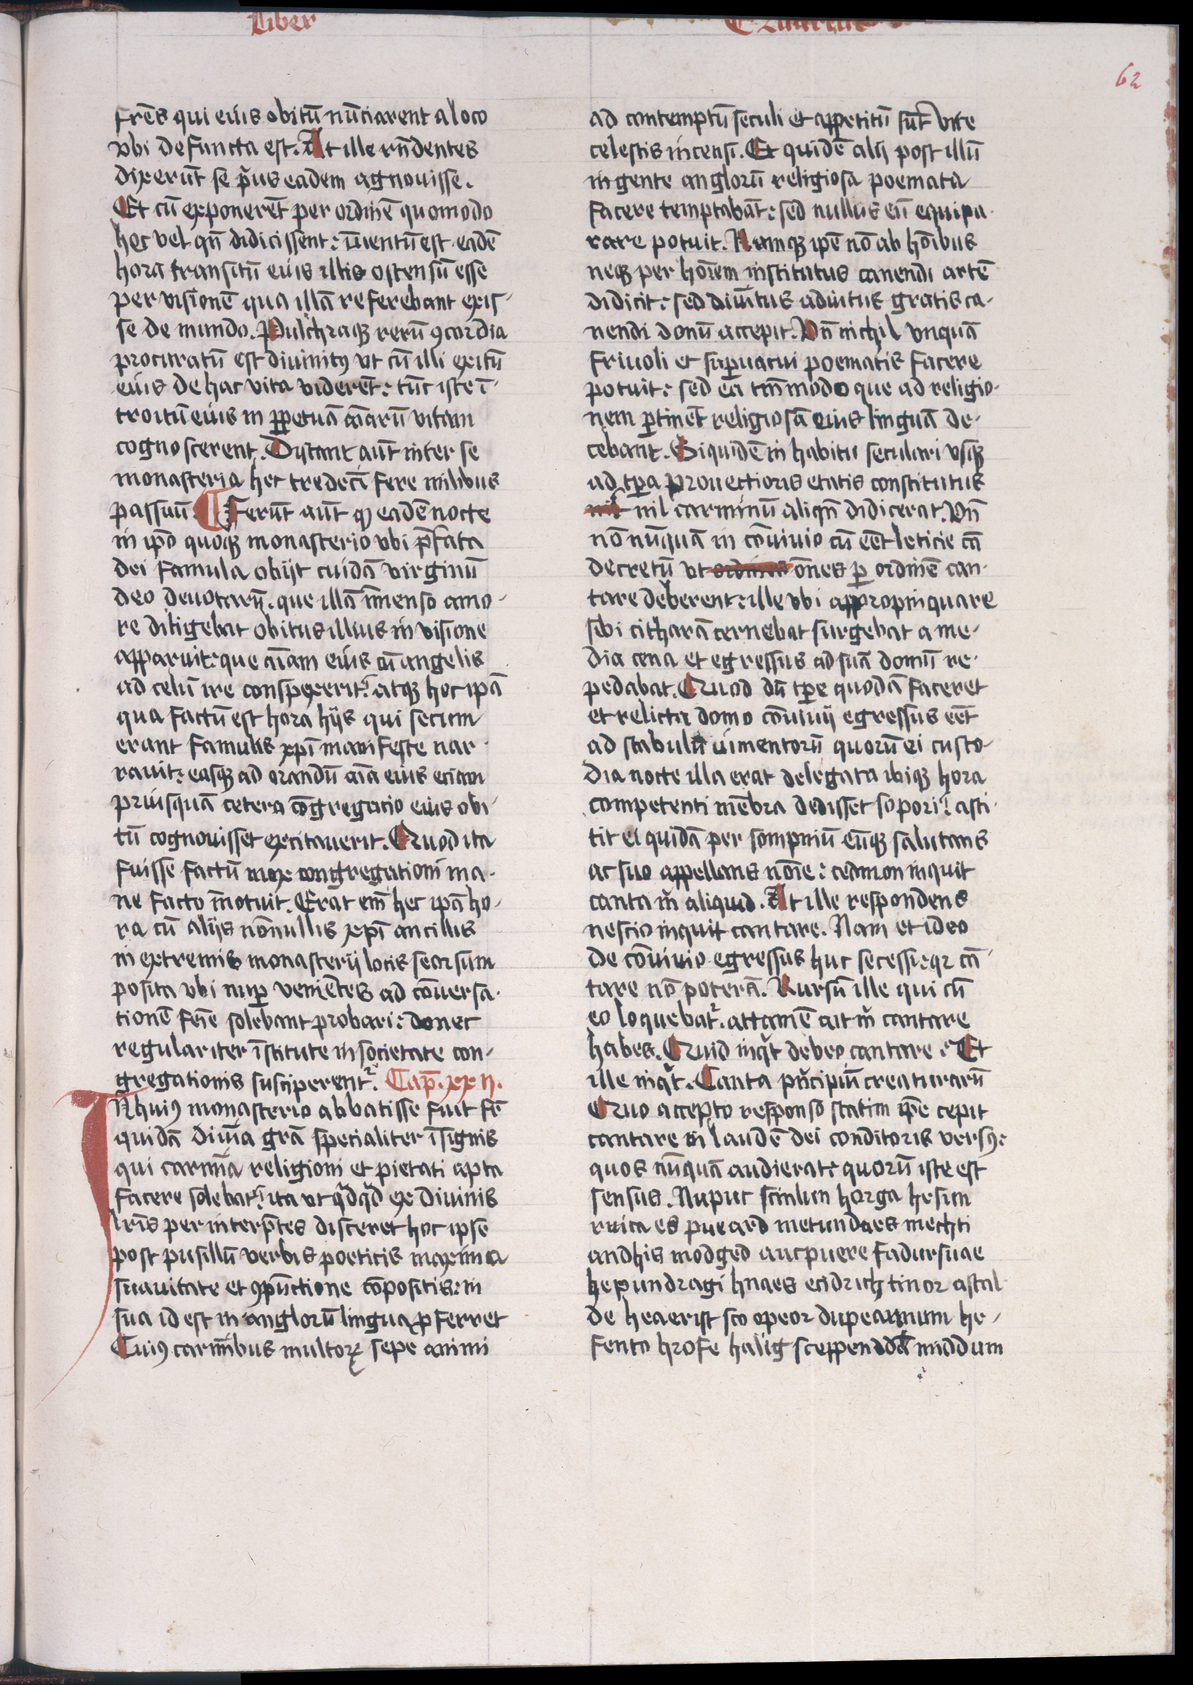 Liber
62
fr̄es qui eius obitū nūciarent a loco
vbi defuncta est. At ille rn̄dentes
dixerūt se p̄us eadem agnouisse.
Et cū exponerēt per ordinē quomodo
hec vel qn̄ didicissent: inuentū est eadē
hora transitū eius illis ostensū esse
per visionē qua illā referebant exis-
se de mundo. Pulchraqꝫ rerū ꝯcordia
procuratū est diuinitꝰ vt cū illi exitū
eius de hac vita viderēt: tūc iste ī-
troitū eius in ꝑpetuā aīarū vitam
cognoscerent. Distant aūt inter se
monasteria hec tredecī fere milibus
passuū. ¶ Ferūt aūt ꝙ eadē nocte
in ip̄o quoqꝫ monasterio vbi p̄fata
dei famula obijt cuidā virginū
deo deuotarū. que illā īmenso amo-
re diligebat obitus illius in visione
apparuit: que aīam eius cū angelis
ad celū ire conspexerit: atqꝫ hoc ipā
qua factū est hora hijs qui secum
erant famulis xp̄i manifeste nar-
rauit: easqꝫ ad orandū aīa eius eciam
priusquā cetera cōgregatio eius obi-
tū cognouisset excitauerit. Quod ita
fuisse factū mox congregationi ma-
ne facto īnotuit. Erat em̄ hec ipā ho-
ra cū alijs nōnullis xp̄i ancillis
in extremis monasterij locis seorsum
posita vbi nuꝑ venientes ad cōuersa-
tionē fēie solebant probari: donec
regulariter īstitute in societate con-
gregationis susciperentᷣ. Cap. xx ij.
IN huiꝰ monasterio abbatisse fuit fr̄
quidā diuīa grā specialiter īsignis
qui carmīa religioni et pietati apta
facere solebat: ita vt qͥdqͥd ex diuinis
lr̄is per interp̄tes disceret hoc ipse
post pusillū verbis poeticis maxima
suauitate et ꝯpūctione cōpositis: in
sua id est in anglorū lingua ꝓferret
Cuiꝰ carmībus multoꝝ sepe animi
ad contemptū seculi et appetitū sūt vite
celestis incensi. Et quidē alij post illū
in gente anglorū religiosa poemata
facere temptabāt: sed nullus eū equipa-
rare potuit. Namqꝫ ip̄e nō ab hoībus
neqꝫ per hoīem institutus canendi artē
didicit: sed diuītus adiutus gratis ca-
nendi donū accepit. Vn̄ nichil vnquā
friuoli et suꝑuacui poematis facere
potuit: sed ea tm̄modo que ad religio-
nem ꝑtinēt religiosā eius linguā de-
cebant. Siquidē in habitu seculari vsqꝫ
ad tp̄a prouectioris etatis constitutus
nil carminū aliqn̄ didicerat. Vn̄
nō nūquā in cōuiuio cū eēt leticie cā
decretū vt om̄es ꝑ ordinē can-
tare deberent: ille vbi appropinquare
sibi citharā cernebat surgebat a me-
dia cena et egressus ad suā domū re-
pedabat. Quod dū tp̄e quodā faceret
et relicta domo cōuiuij egressus eēt
ad stabulū iumentorū quorū ei custo-
dia nocte illa erat delegata ibiqꝫ hora
competenti mēbra dedisset sopori: asti-
tit ei quidā per sompniū eūqꝫ salutans
ac suo appellans nōie: cedmon inquit
canta m̄ aliquid. At ille respondens
nescio inquit cantare. Nam et ideo
de cōuiuio egressus huc secessi: qꝛ cā-
tare nō poterā. Rursū ille qui cū
eo loquebatᷣ. attamē ait m̄ cantare
habes. Quid inqͥt debeo cantare: Et
ille inqͥt. Canta pn̄cipiū creaturarū
Quo accepto responso statim ip̄e cepit
cantare in laudē dei conditoris versꝰ:
quos nūquā audierat: quorū iste est
sensus. Nupue scinlun herga hesun
ruica es pueard metundaes mechti
andhis modged aucpuere fadursuae
hepundragi hnaes eidrichtinor astal
de heaerist sco opeor dupearnum he-
fento hrofe halig sceppend middum